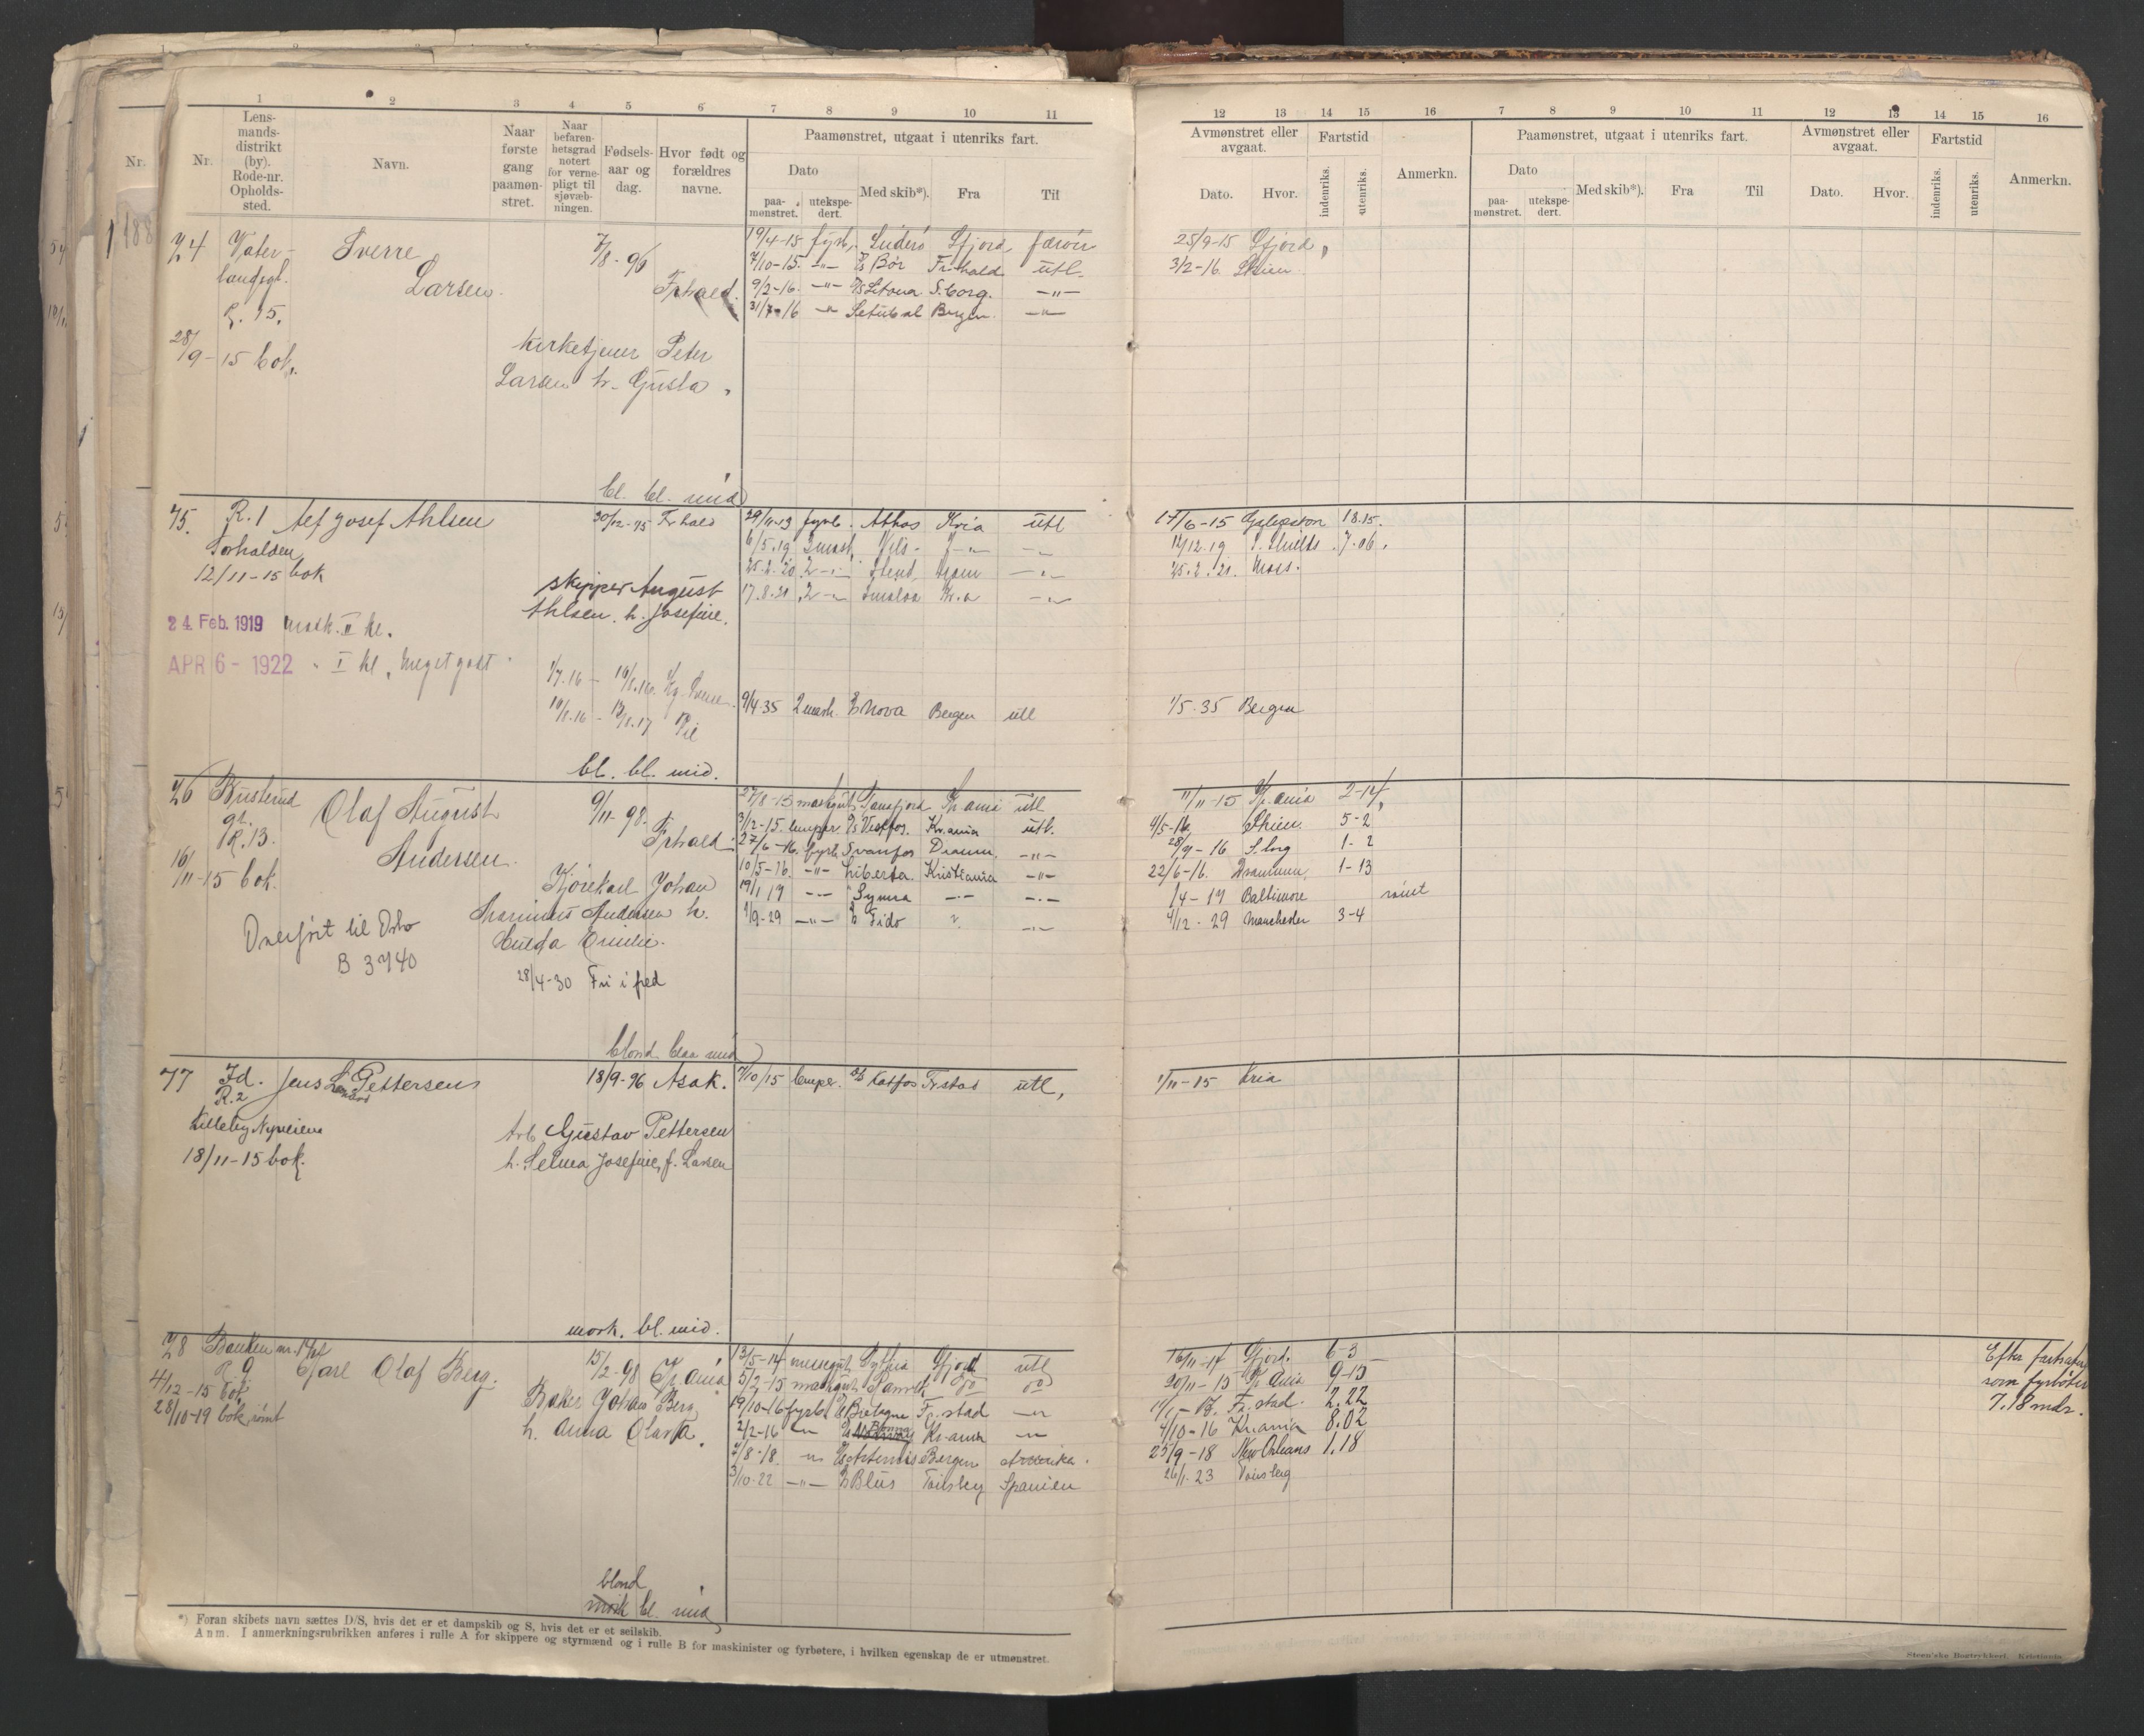 1 2 3 4 5 6 7 8 9 10 11
Nr.
Nr.
Lens-
mands-
distrikt
(by).
Rode-nr.
Opholds-
sted.
Navn.
Naar
første
gang
paamøn-
stret.
Naar
befaren-
hetsgrad
notert
for verne-
pligt til
sjøvæb-
ningen.
Fødsels-
aar og
dag.
Hvor født og
forældres
navne.
Paamønstret, utgaat i utenriks fart.
Dato
paa-
mønstret.
utekspe-
dert.
Med skib*).
Fra
Til
12 13 14 15 16 7 8 9 10 11 12 13 14 15 16
Avmønstret eller
avgaat.
Dato.
Hvor.
Fartstid
indenriks.
utenriks.
Anmerkn.
Paamønstret, utgaat i utenriks fart.
Dato
paa-
mønstret.
utekspe-
dert.
Med skib*).
Fra
Til
Avmønstret eller
avgaat.
Dato.
Hvor.
Fartstid
indenriks.
utenriks.
Anmerkn.
74 Vater- Sverre 7/8-96
Larsen. Frhald.
R. 15.
28/9-15 bok.
kirketjener Peter
Larsen h. Gusta
19/4-15 fyrb. Sfjord
7/10-15. -"- Bør Fr.hald utl.
9/2-16. -"- S.borg. -"-
31/7-16 -"- Setubal Bergen. -"-
25/9-15 Sfjord
3/2-16. Skien.
bl. bl. mid
75. R. 1 Alf Josef Ahlsen 30/12-95 Frhald
12/11-15 bok
skipper August
Ahlsen. h. Josefine.
24. Feb. 1919 mask. II kl.
APR 6 - 1922 " I kl, meget godt
29/11-13 fyrb. Athos Kria utl
6/5.19 2mash.
25.2.20 2 -"-
17.8.21 2 -"- Kr.a -"-
9/4 35 2 mash. Nova Bergen utl
17/6-15 18.15.
12/12.19 S. Shields 7-06.
25.2.21. Moss.
1/5.35 Bergen
bl. bl. mid.
76 Busterud Olaf August 9/11-98.
gt.
R. 13. Andersen. Frhald.
16/11-15 bok.
Kjørekarl Johan
Marinius Andersen h.
Hulda Emilie.
Overført til Oslo
B 3740
28/4-30 Fri i fred
27/8-15 maskgut Kr.ania utl
3/12-15. lemper. D/S Vestfos. Kr.ania utl.
27/6-16. fyrb. Svanfos Dramm. -"-
10/5-16. -"- Liberta. Kristiania -"-
19/1 17 -"- Symra -"- -"-
-"- Fido " -"-
11/11-15 Kr.ania 2-14
4/5-16. Skien. 5-2
28/9-16 S.borg 1-2
22/6-16. Drammen. 1-13
/4-17 Baltimore rømt
4/12.29 Manchester 3-4
blond blaa mid
77 Id. Jens Pettersen 18/9-96 Asak.
R. 2
Lilleby Nyveiene
18/11-15 bok.
Arb. Gustav Pettersen
h. Selma Josefine, f. Larsen
7/10/15 lemper. D/S Katfos Fr.stad utl,
1/11-15 Kria
mork. bl. mid.
78 Banken nr.
R. 9 Karl Olaf Berg. 15/2-98 Kr.ania
4/12-15 bok
28/10-19 bok rømt
Baker Johan Berg
h. Anna Olava.
13/5-14 messegut Sylfia Sfjord utl
5/2-15 maskgut do do
19/10-16 fyrb. Bretagne Fr.stad -"-
2/2-16 -"- Bonna Kr.ania -"-
7/8-18. -"- Artemis Bergen Amerika.
3/10-22 -"- Blus Tønsberg Spanien
16/11-14 Sfjord. 6-3
20/11-15 Kr.ania 9-15
Fr.stad. 2.22
4/10-16 Kr.ania 8.02
25/9-18 New Orleans 1.18
26/1.23 Tønsberg
Efter fartsattest
som fyrbøter
7.18 mdr.
blond
mork bl. mid
*) Foran skibets navn sættes D/S, hvis det er et dampskib og S, hvis det er et seilskib.
Anm. I anmerkningsrubrikken anføres i rulle A for skippere og styrmænd og i rulle B for maskinister og fyrbøtere, i hvilken egenskap de er utmønstret.
Steen'ske Bogtrykkeri. Kristiania